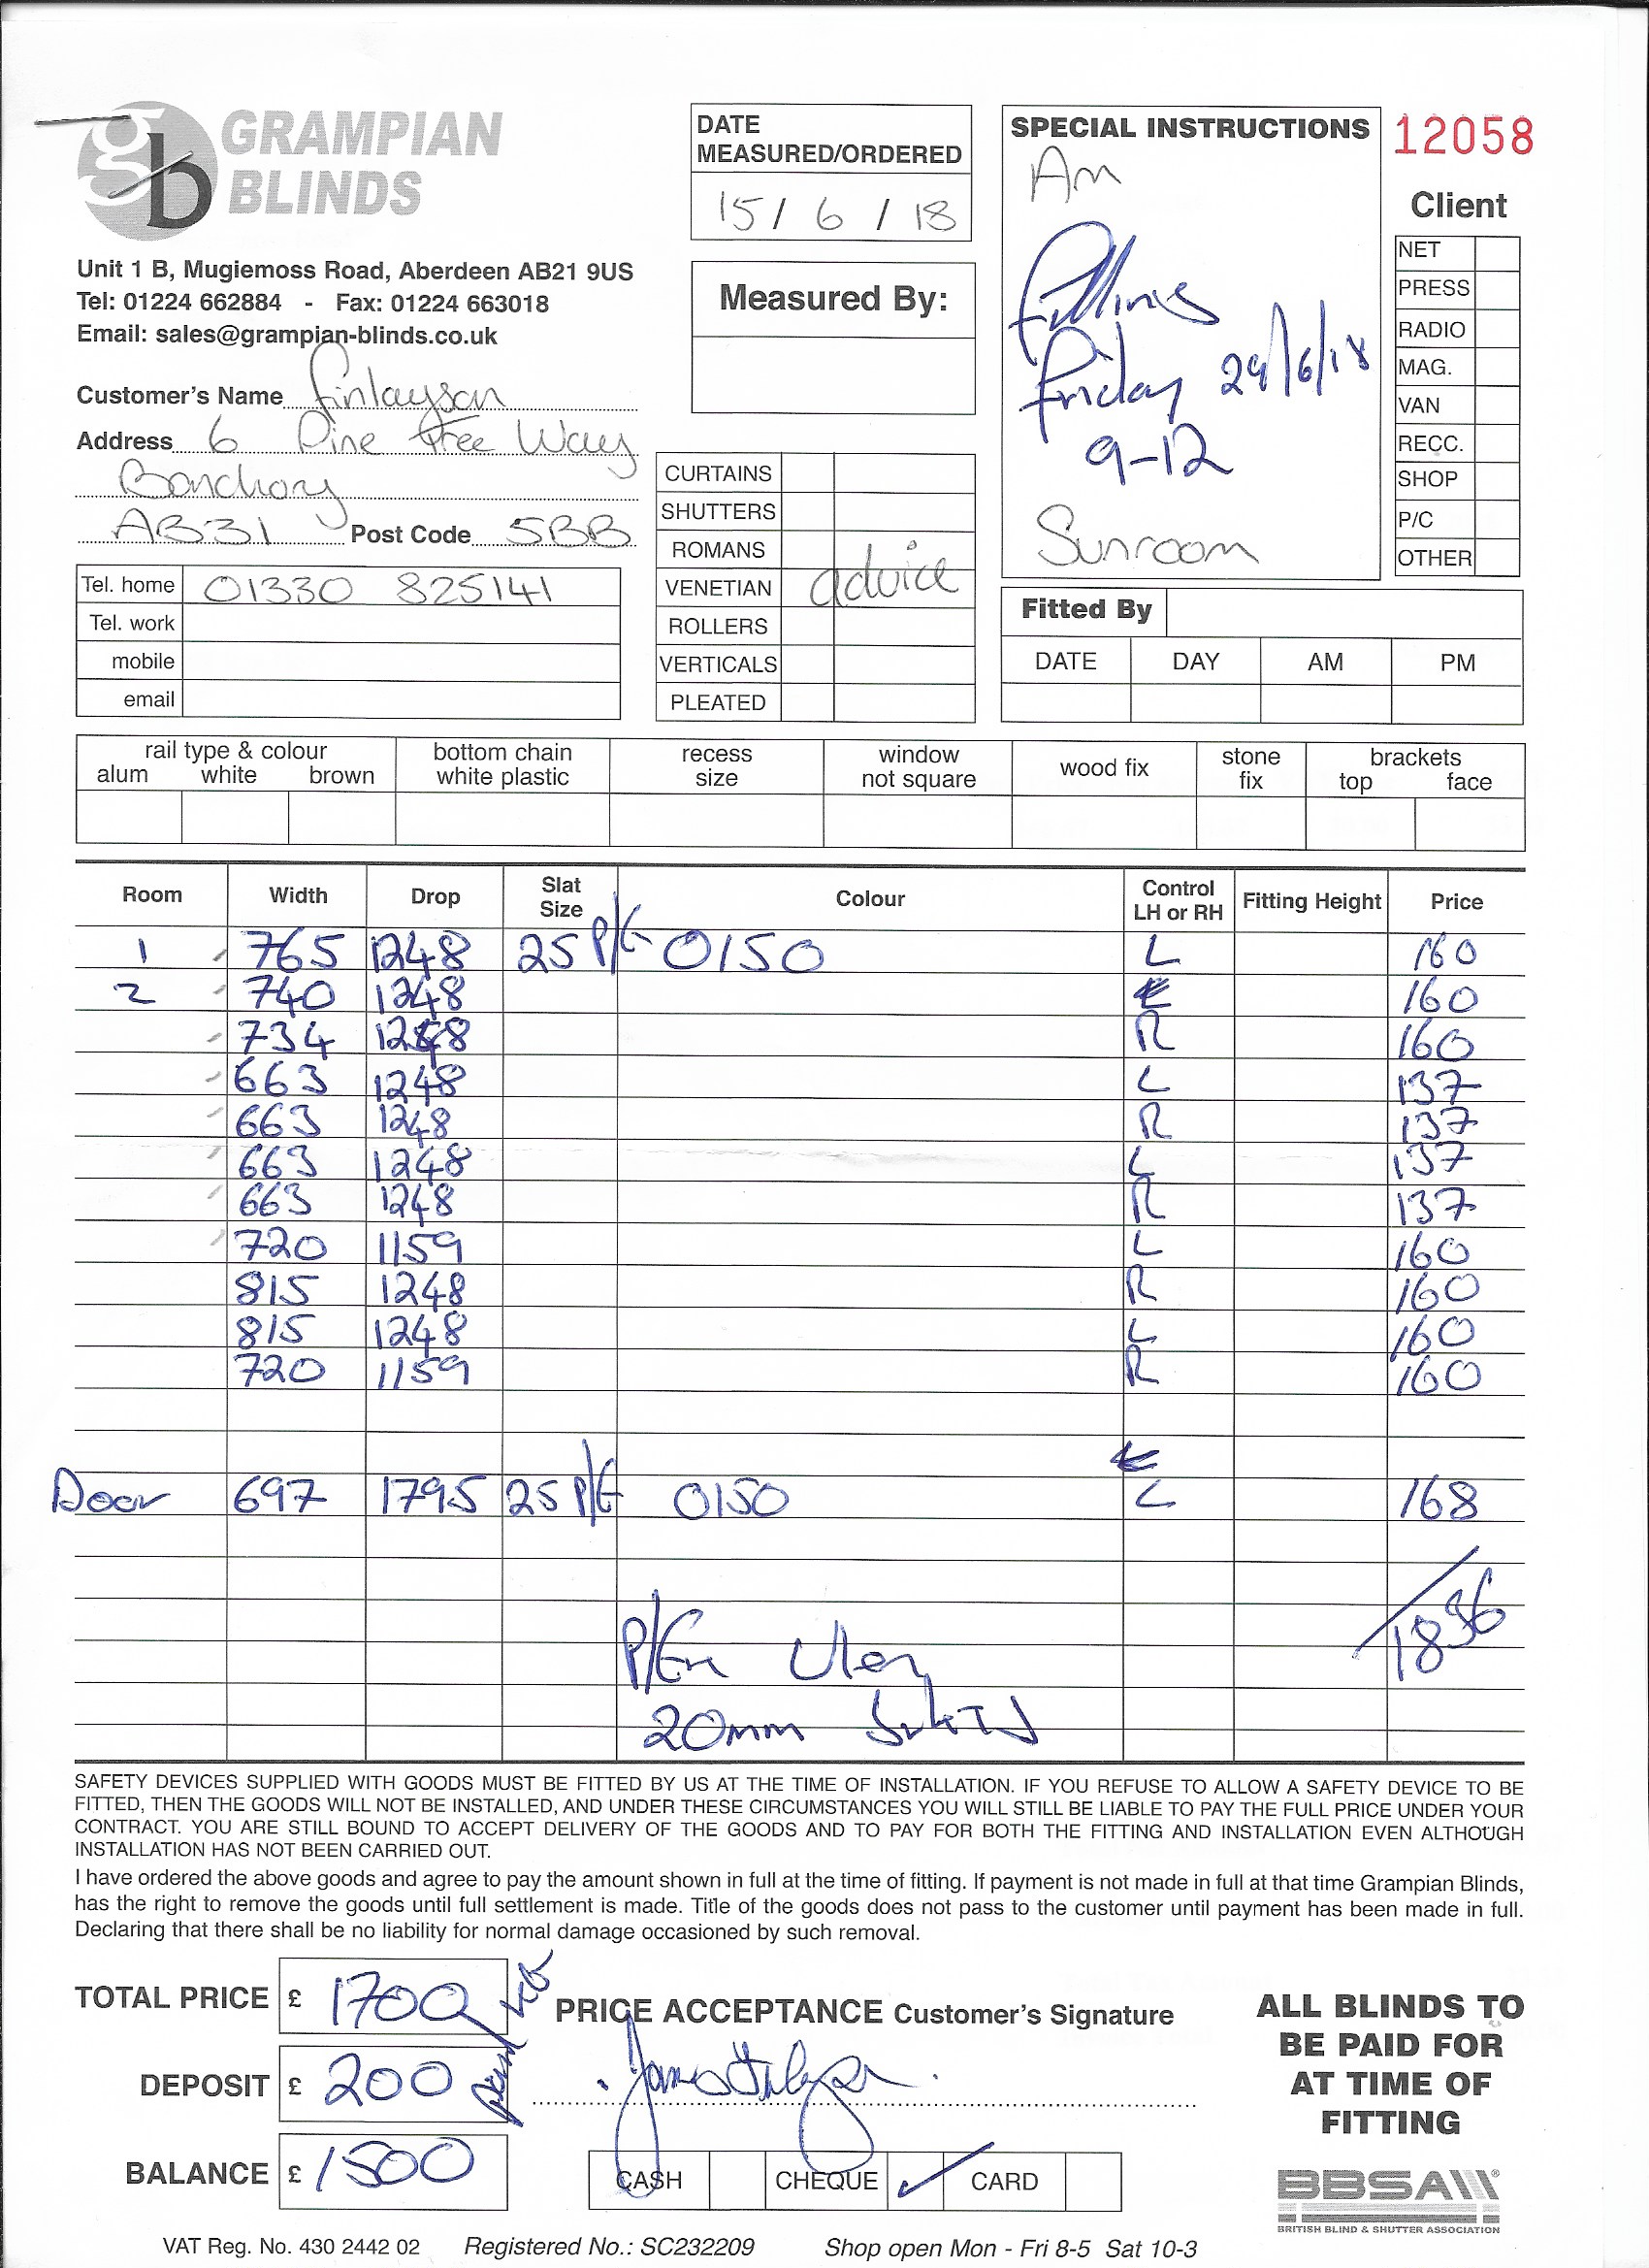 GRAMPIAN
BLINDS
Unit 1 B, Mugiemoss Road, Aberdeen AB21 9US
Tel: 01224 662884 - Fax: 01224 663018
Email: sales@grampian-blinds.co.uk
DATE
MEASURED/ORDERED
15 / 6 / 18
Measured By:
SPECIAL INSTRUCTIONS
Am
Fitting
Friday 29/6/18
9-12
Sunroom
12058
Client
NET
PRESS
RADIO
MAG.
VAN
RECC.
SHOP
P/C
OTHER
Customer's Name Finlayson
Address 6 Pine Tree Way
Banchory
AB31 Post Code 5BB
Tel. home 01330 825141
Tel. work
mobile
email
CURTAINS
SHUTTERS
ROMANS
VENETIAN advice
ROLLERS
VERTICALS
PLEATED
Fitted By
DATE DAY AM PM
rail type & colour
alum white brown
bottom chain
white plastic
recess
size
window
not square
wood fix
stone
fix
brackets
top face
Room Width Drop Slat Size Colour Control LH or RH Fitting Height Price
1 765 1248 25 P/G 0150 L 160
2 740 1248 160
734 1248 R 160
663 1248 L 137
663 1248 R 137
663 1248 L 137
663 1248 R 137
720 1159 L 160
815 1248 R 160
815 1248 L 160
720 1159 R 160
Door 697 1795 25 P/G 0150 L 168
1836
20mm
SAFETY DEVICES SUPPLIED WITH GOODS MUST BE FITTED BY US AT THE TIME OF INSTALLATION. IF YOU REFUSE TO ALLOW A SAFETY DEVICE TO BE
FITTED, THEN THE GOODS WILL NOT BE INSTALLED, AND UNDER THESE CIRCUMSTANCES YOU WILL STILL BE LIABLE TO PAY THE FULL PRICE UNDER YOUR
CONTRACT. YOU ARE STILL BOUND TO ACCEPT DELIVERY OF THE GOODS AND TO PAY FOR BOTH THE FITTING AND INSTALLATION EVEN ALTHOUGH
INSTALLATION HAS NOT BEEN CARRIED OUT.
I have ordered the above goods and agree to pay the amount shown in full at the time of fitting. If payment is not made in full at that time Grampian Blinds,
has the right to remove the goods until full settlement is made. Title of the goods does not pass to the customer until payment has been made in full.
Declaring that there shall be no liability for normal damage occasioned by such removal.
TOTAL PRICE £ 1700
DEPOSIT £ 200
BALANCE £ 1500
PRICE ACCEPTANCE Customer's Signature
CASH CHEQUE ✓ CARD
ALL BLINDS TO
BE PAID FOR
AT TIME OF
FITTING
BBSA
BRITISH BLIND & SHUTTER ASSOCIATION
VAT Reg. No. 430 2442 02 Registered No.: SC232209 Shop open Mon - Fri 8-5 Sat 10-3